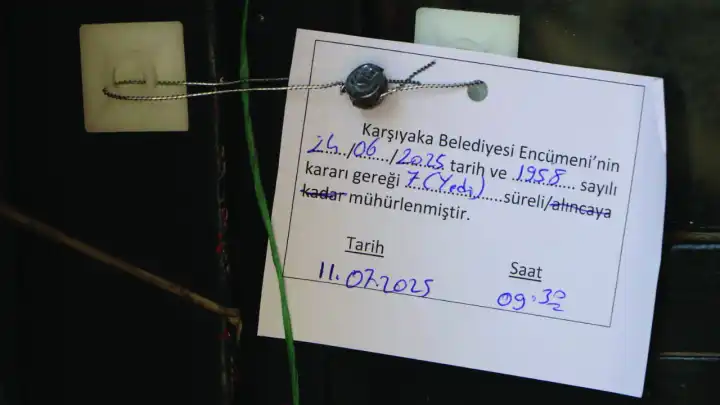 Karşıyaka Belediyesi Encümeni'nin
24../06..../2025. tarih ve ..1958.... sayılı
kararı gereği 7 (Yedi)......süreli/alıncaya
kadar mühürlenmiştir.
Tarih
Saat
11.07.2025
09:30